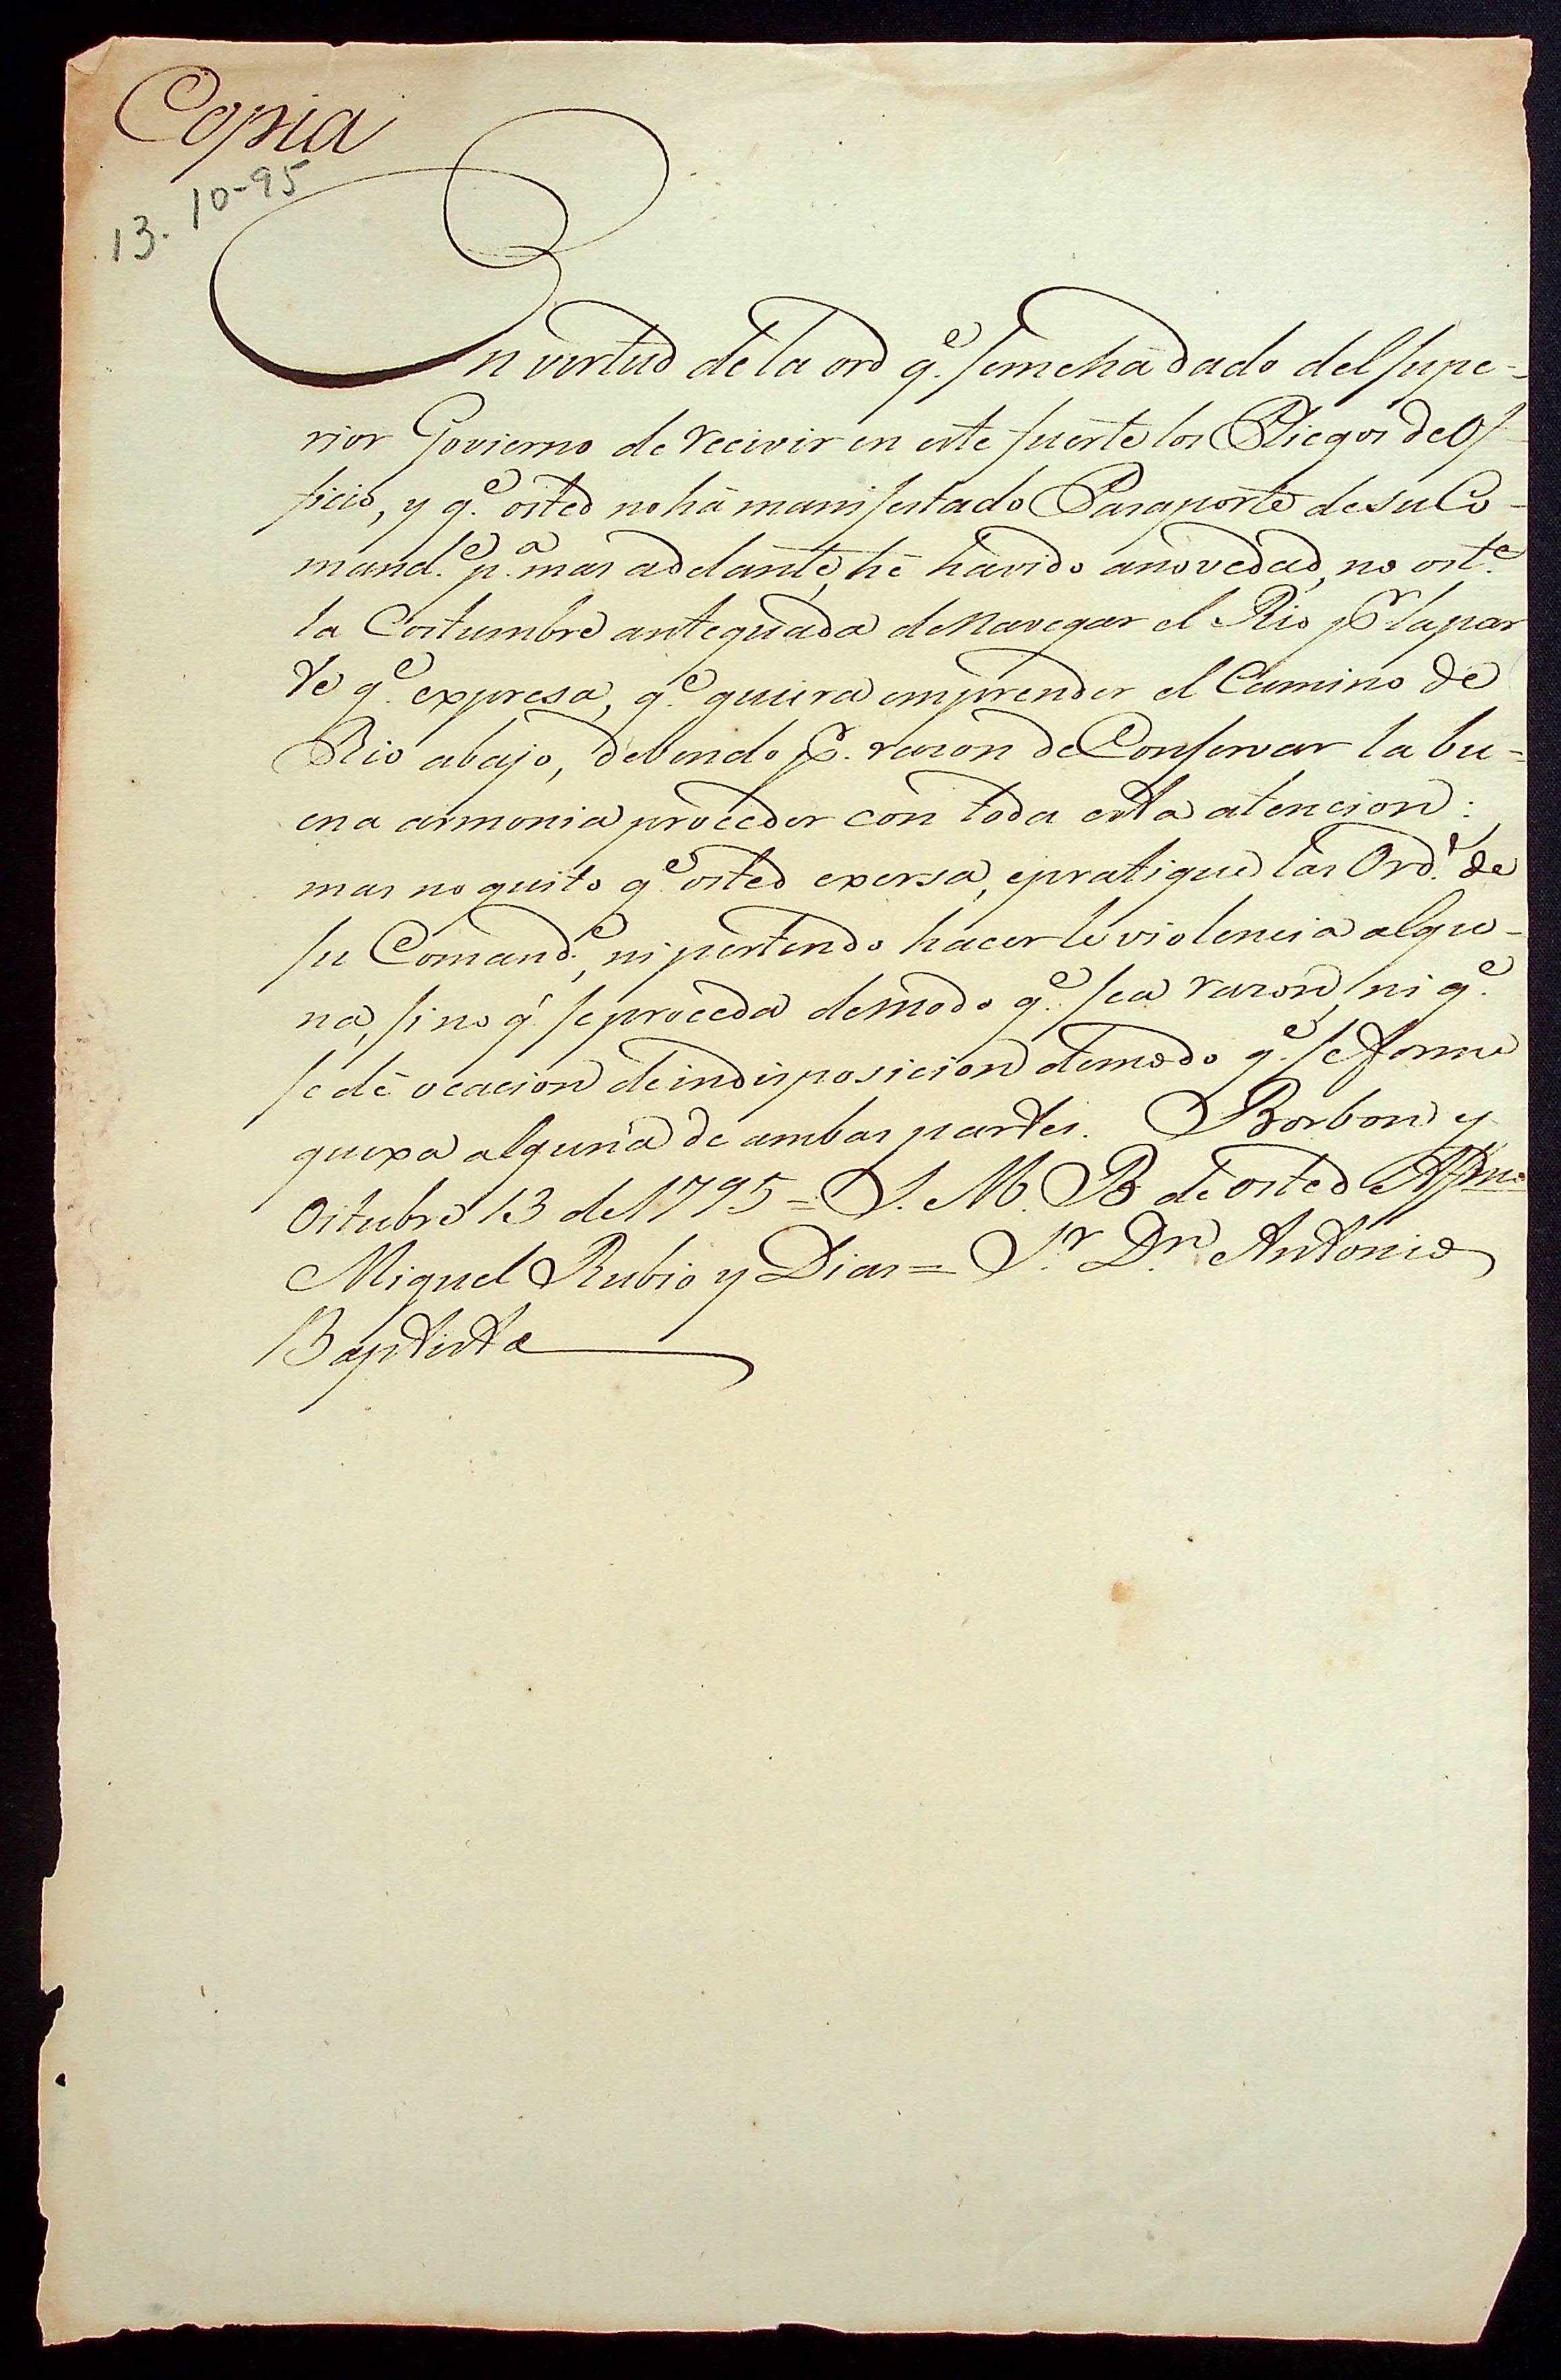 Copia
13. 10-95
En virtud de la ord q.e se me há dado del Supe-
rior Govierno de recivir en este fuerte los Pliegos de Of-
ficio, y q.e osted no há manifestado Pasaporte de su Co-
mand.e p.a mas addante, hé havido a novedad, no ost.e
la Costumbre antequada de Navegar el Rio pr la par
te q.e expresa, q.e quiera emprender el Camino de
Rio abajo, debendo p.r razon de Conservar la bu=
ena armonia proceder con toda esta atencion:
mas no quito q.e osted exersa, e pratique las Ord.s de
su Comand.e, ni pertendo hacerle violencia algu-
na, sino q.' se proceda de modo q.e sea razon, ni q.e
se dé ocacion de indisposicion de modo q.e se forme
quexa alguna de ambas partes. Borbon y
Octubre 13 de 1795 = S. M. B de osted Affmo
Miguel Rubio y Dias = S.r D.n Antonio
Baptista